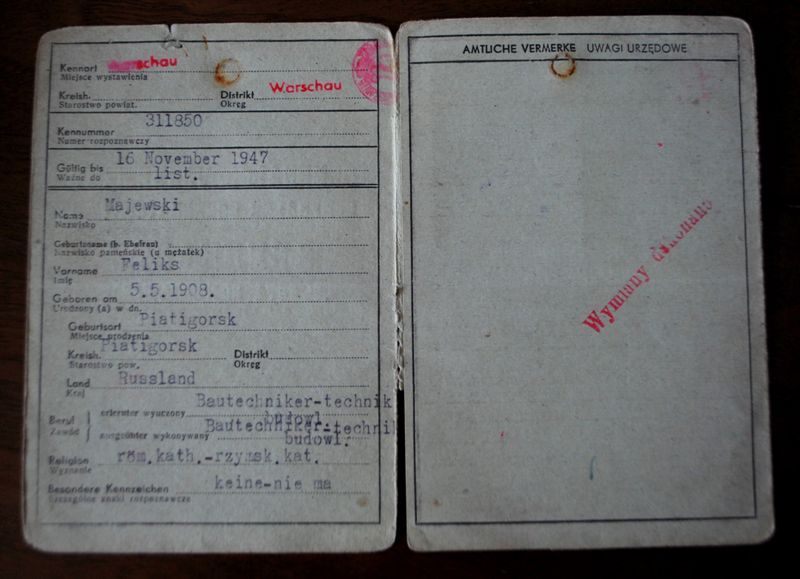 Kennort Warschau
Miejsce wystawienia
Kreish. Distrikt Warschau
Starostwo powiat. Okręg
311850
Kennummer
Numer rozpoznawczy
16 November 1947
Gültig bis list.
Ważne do
Majewski
Name
Nazwisko
Geburtsname (b. Ehefrau)
Nazwisko panieńskie (u mężatek)
Feliks
Vorname
Imię
5.5.1908.
Geboren am
Urodzony (a) w dn.
Geburtsort Piatigorsk
Miejsce urodzenia
Piatigorsk
Kreish. Distrikt
Starostwo pow. Okręg
Land Russland
Kraj
Bautechniker-technik
Beruf erlernter wyuczony budowl.
Bautechniker-technik
Zawód ausgeübter wykonywany budowl.
Religion röm.kath.-rzymsk.kat.
Wyznanie
Besondere Kennzeichen keine-nie ma
Szczególne znaki rozpoznawcze
AMTLICHE VERMERKE UWAGI URZĘDOWE
Wymiany dokonano